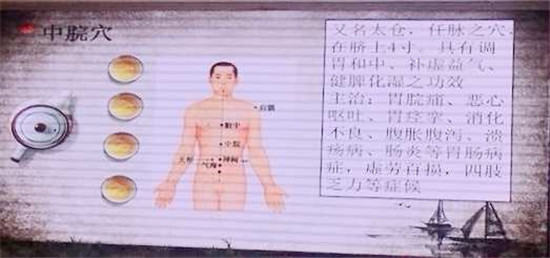 中脘穴
又名太仓，任脉之穴，
在脐上4寸。具有调
胃和中、补虚益气、
健脾化湿之功效
主治：胃脘痛、恶心
呕吐、胃痉挛、消化
不良、腹胀腹泻、溃
疡病、肠炎等胃肠病
症，虚劳百损，四肢
乏力等症候
肩髃
膻中
中脘
天枢
神阙
气海